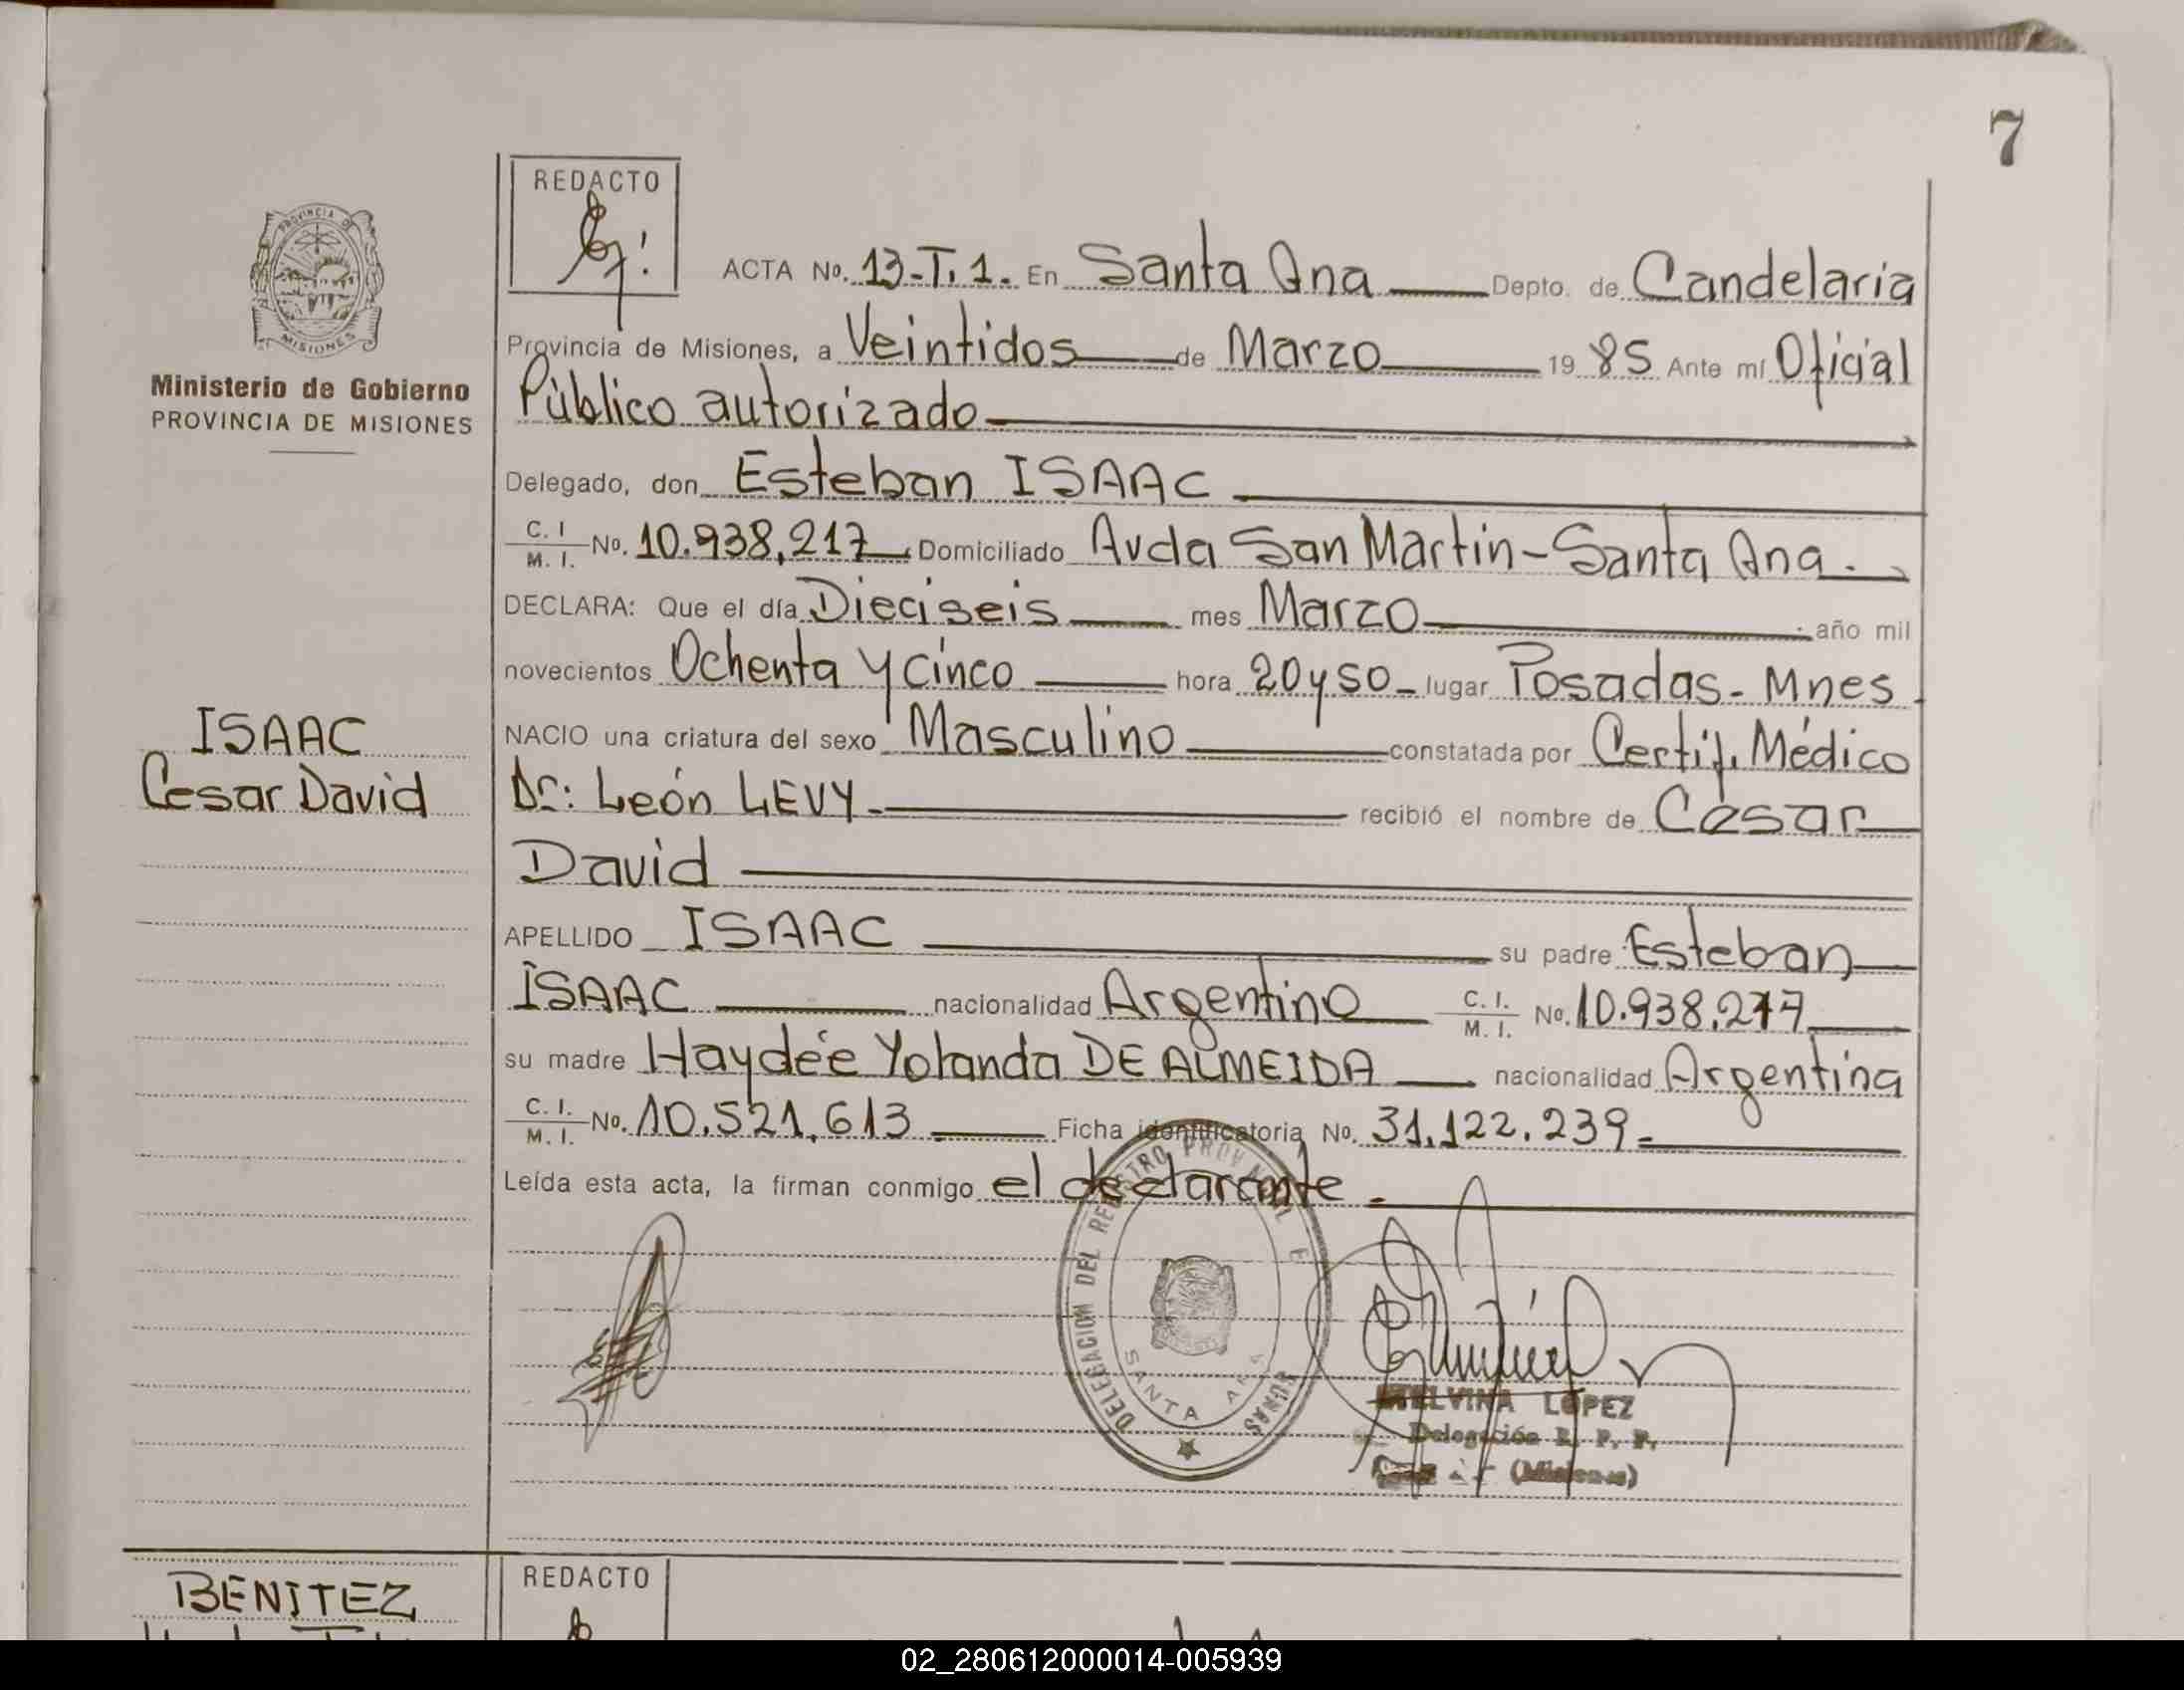 7
REDACTO
PROVINCIA DE
MISIONES
Ministerio de Gobierno
PROVINCIA DE MISIONES
ACTA No. 13-T.1. En Santa Ana Depto. de Candelaria
Provincia de Misiones, a Veintidos de Marzo 1985 Ante mí Oficial
Público autorizado
Delegado, don Esteban ISAAC
C. I / M. I. No. 10.938.217 Domiciliado Avda San Martin-Santa Ana.
DECLARA: Que el día Dieciseis mes Marzo año mil
novecientos Ochenta y cinco hora 20 y 50 lugar Posadas-Mnes.
NACIO una criatura del sexo Masculino constatada por Certif. Médico
Dr: León LEVY. recibió el nombre de César
David
ISAAC
Cesar David
APELLIDO ISAAC su padre Esteban
ISAAC nacionalidad Argentino C. I. / M. I. No. 10.938.217
su madre Haydée Yolanda DE ALMEIDA nacionalidad Argentina
C. I. / M. I. No. 10.521.613 Ficha identificatoria No. 31.122.239
Leída esta acta, la firman conmigo el declarante.
DELEGACION DEL REGISTRO PROVINCIAL DE
SANTA ANA
LOPEZ
Delegación R. P. P.
(Misiones)
BENITEZ
REDACTO
02_280612000014-005939